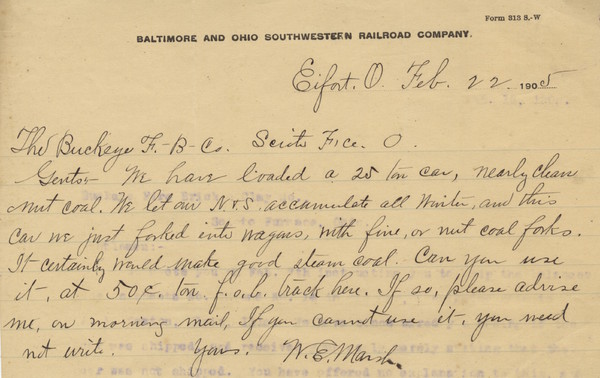 Form 313 S.-W
BALTIMORE AND OHIO SOUTHWESTERN RAILROAD COMPANY.
Eifort, O. Feb. 22 1905
The Buckeye F.-B-Co. Scioto F'ce. O.
Gents:- We have loaded a 25 ton car, nearly clean
nut coal. We let our N&S. accumulate all Winter, and this
car we just forked into wagons, with fine, or nut coal forks.
It certainly would make good steam coal. Can you use
it, at 50¢. ton f.o.b. track here. If so, please advise
me, on morning mail, If you cannot use it, you need
not write. Yours. W. E. Marsh